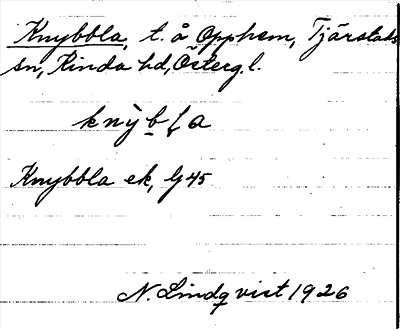 Knybbla, t. å Opphem, Tjärstads
sn, Kinda hd, Österg. l.
knỳbla
Knybbla ek, Lj 45
N. Lindqvist 1926